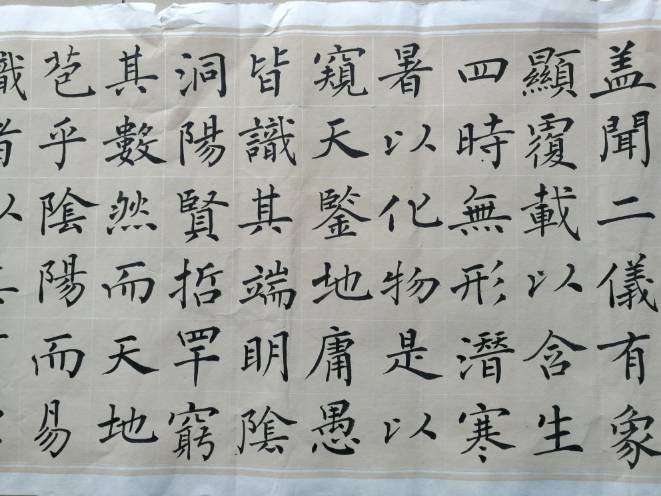 盖聞二儀有象
顯覆載以含生
四時無形潛寒
暑以化物是以
窺天鑒地庸愚
皆識其端明陰
洞陽賢哲罕窮
其數然而天地
苞乎陰陽而易
識者以其